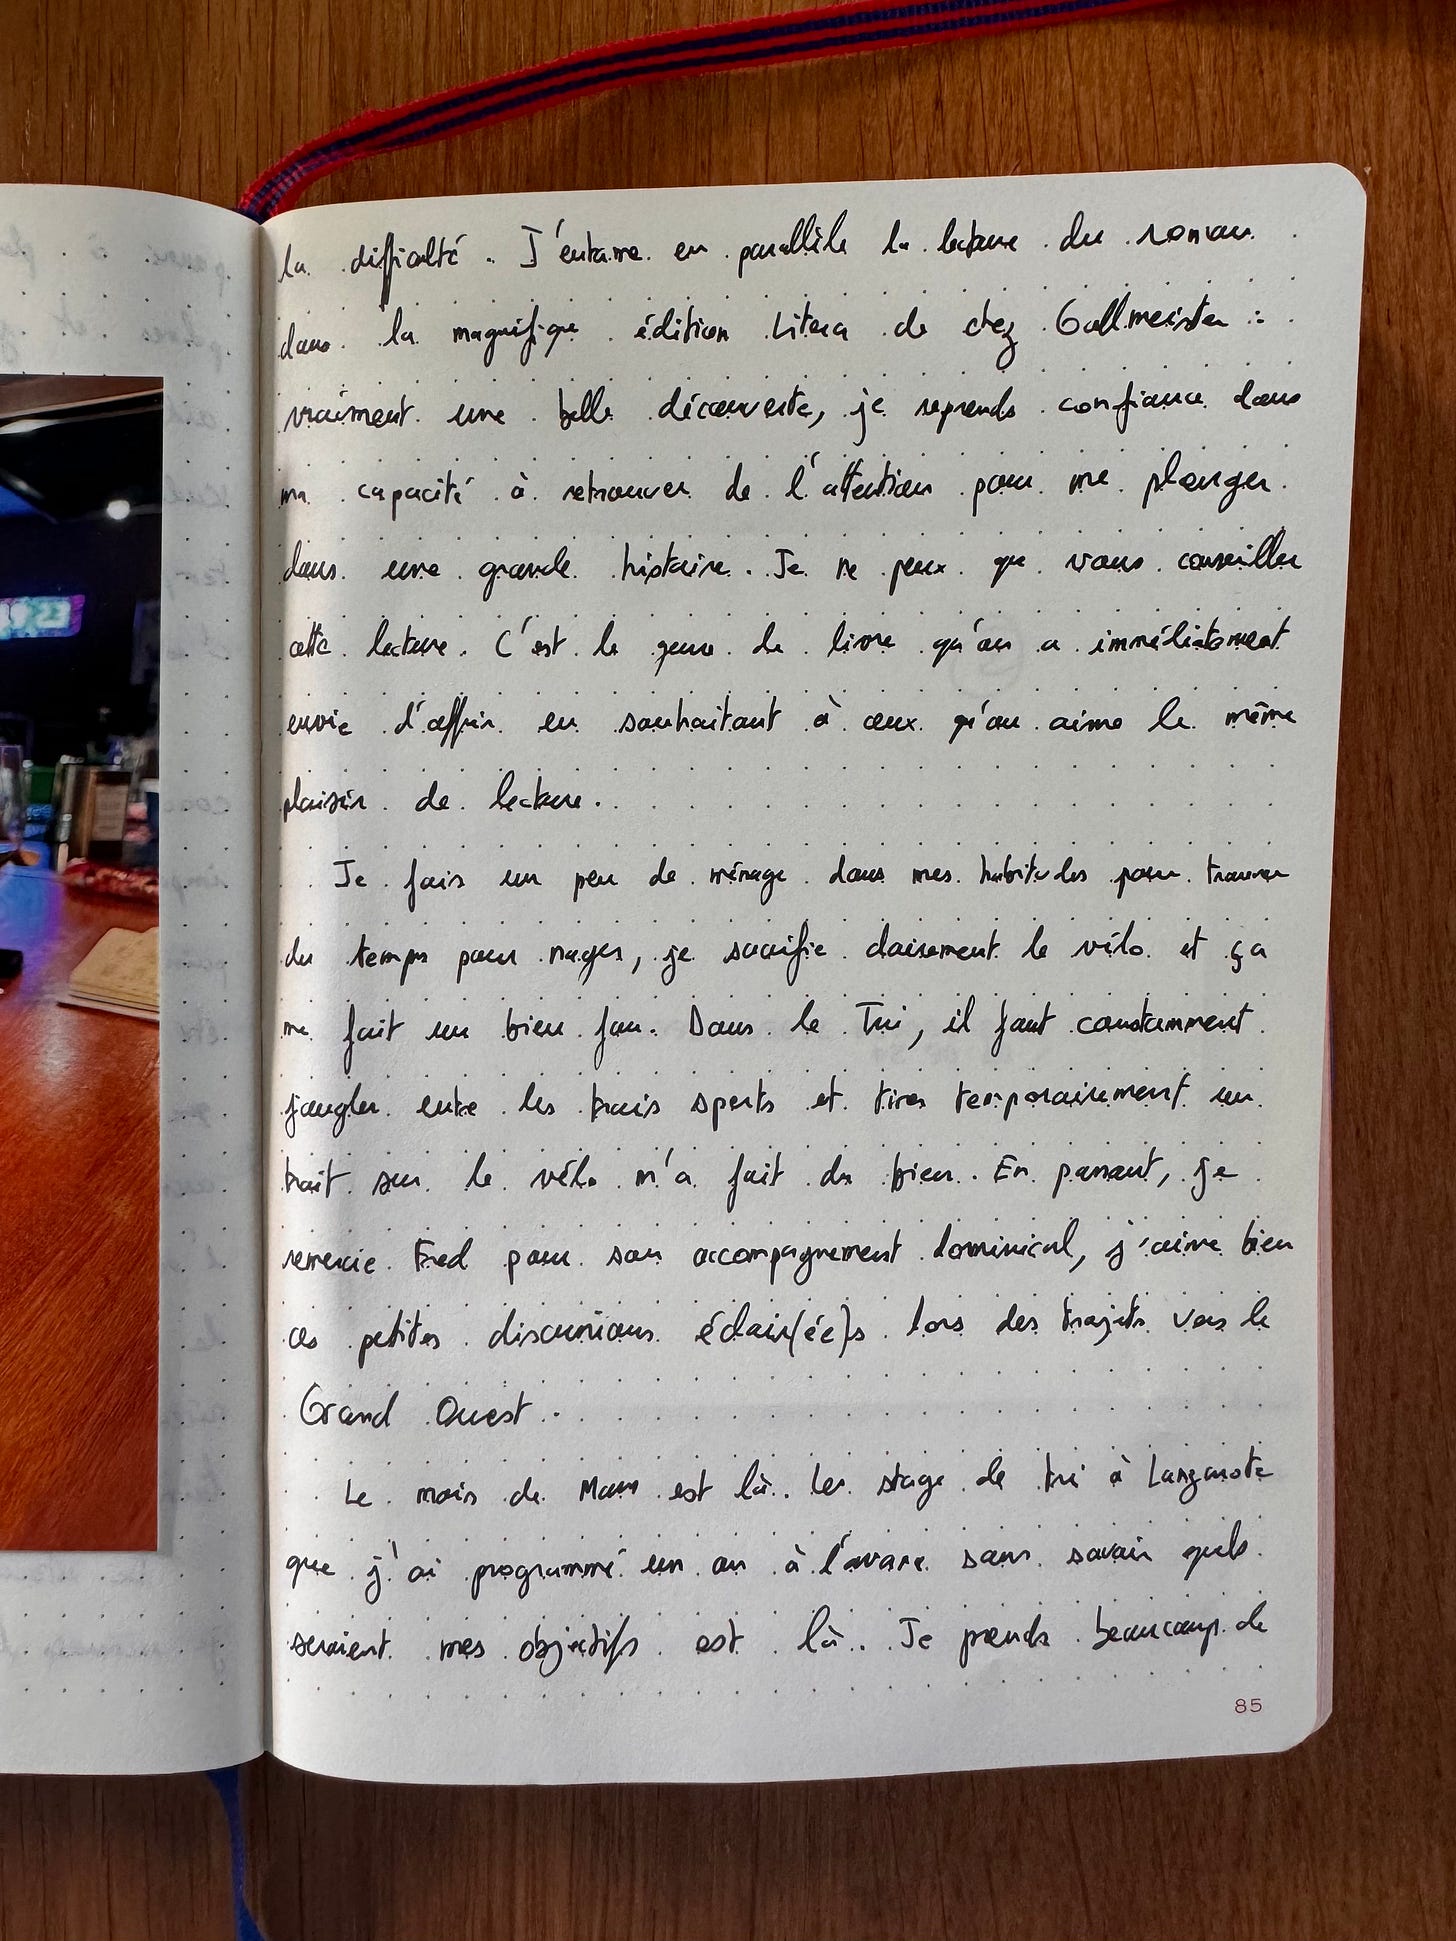 la difficulté. J'entame en parallèle la lecture du roman
dans la magnifique édition Litera de chez Gallmeister :
vraiment une belle découverte, je reprends confiance dans
ma capacité à retrouver de l'attention pour me plonger
dans une grande histoire. Je ne peux que vous conseiller
cette lecture. C'est le genre de livre qu'on a immédiatement
envie d'offrir en souhaitant à ceux qu'on aime le même
plaisir de lecture.
Je fais un peu de ménage dans mes habitudes pour trouver
du temps pour nager, je sacrifie clairement le vélo et ça
me fait un bien fou. Dans le Tri, il faut constamment
jongler entre les trois sports et tirer temporairement un
trait sur le vélo m'a fait du bien. En passant, je
remercie Fred pour son accompagnement dominical, j'aime bien
ces petites discussions éclair(ée)s lors des trajets vers le
Grand Ouest.
Le mois de Mars est là. Le stage de tri à Lanzarote
que j'ai programmé un an à l'avance sans savoir quels
seraient mes objectifs est là. Je prends beaucoup de
85